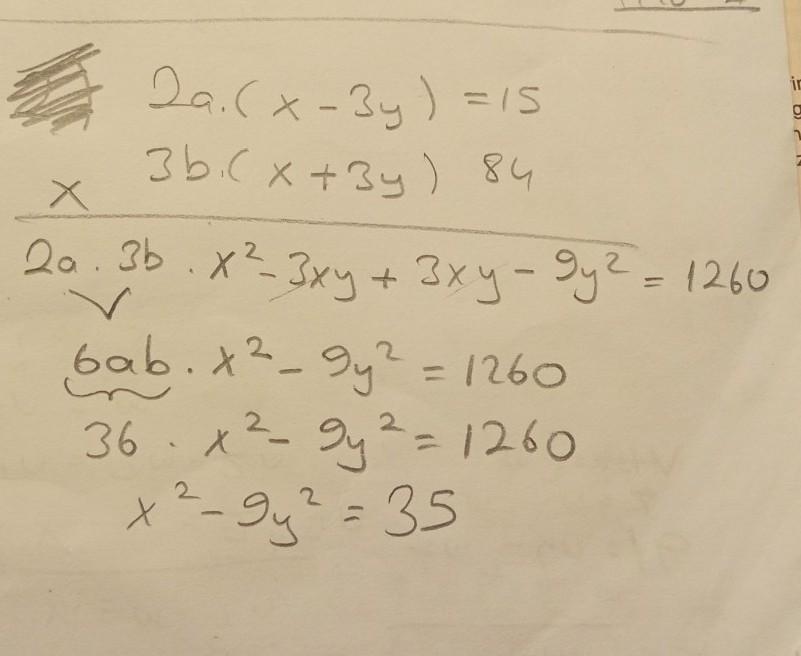 2a.(x-3y) =15
3b.(x+3y) 84
x
2a . 3b . x²- 3xy + 3xy - 9y² = 1260
6ab . x² - 9y² = 1260
36 . x² - 9y² = 1260
x² - 9y² = 35